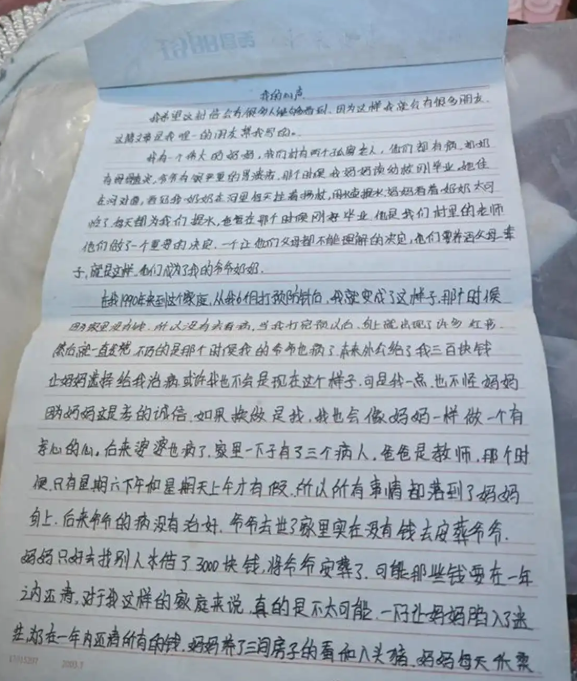 我的心声
我希望这封信会有很多人能够看到,因为这样我就会有很多朋友
这篇文章是我唯一的朋友帮我写的。
我有一个伟大的妈妈,我们村有两个孤寡老人,他们都有病,奶奶
有,爷爷有严重的胃溃疡,那个时候我妈妈读幼教刚毕业,她住
在河对面,看见我奶奶在河里每天拄着拐杖,用水壶提水,妈妈看着奶奶太可
怜了,每天都为我们提水,也爸在那个时候刚好毕业,也是我们村里的老师
他们做了一个重要的决定,一个让他们父母都不能理解的决定,他们要养活父母妻
子,就是这样,他们成为了我的爷爷奶奶。
在我1990年来到这个家庭,从我6个月打预防针后,我就变成了这样子,那个时候
因为家里没有钱,所以没有去看病,当我打完预以后,身上就出现了许多红斑,
然后就一直发烧,不巧的是那个时候我的爷爷也病了,本来外公给了我三百块钱
让妈妈选择给我治病,或许我也不会是现在这个样子,可是我一点也不怪妈妈
因为妈妈这是孝的诚信,如果换做是我,我也会像妈妈一样做一个有
孝心的心。后来婆婆也病了,家里一下子有了三个病人,爸爸是教师,那个时
候,只有星期六下午和星期天上午才有假,所以所有事情都落到了妈妈
身上,后来爷爷的病没有治好,爷爷去世了,家里实在没有钱去安葬爷爷,
妈妈只好去找别人求借了3000块钱,将爷爷安葬了,可能那些钱要在一年
之内还清,对于我这样的家庭来说,真的是不太可能,一下让妈妈陷入了迷
茫,在一年内还清所有的钱,妈妈养了三间房子的蚕和八头猪,妈妈每天